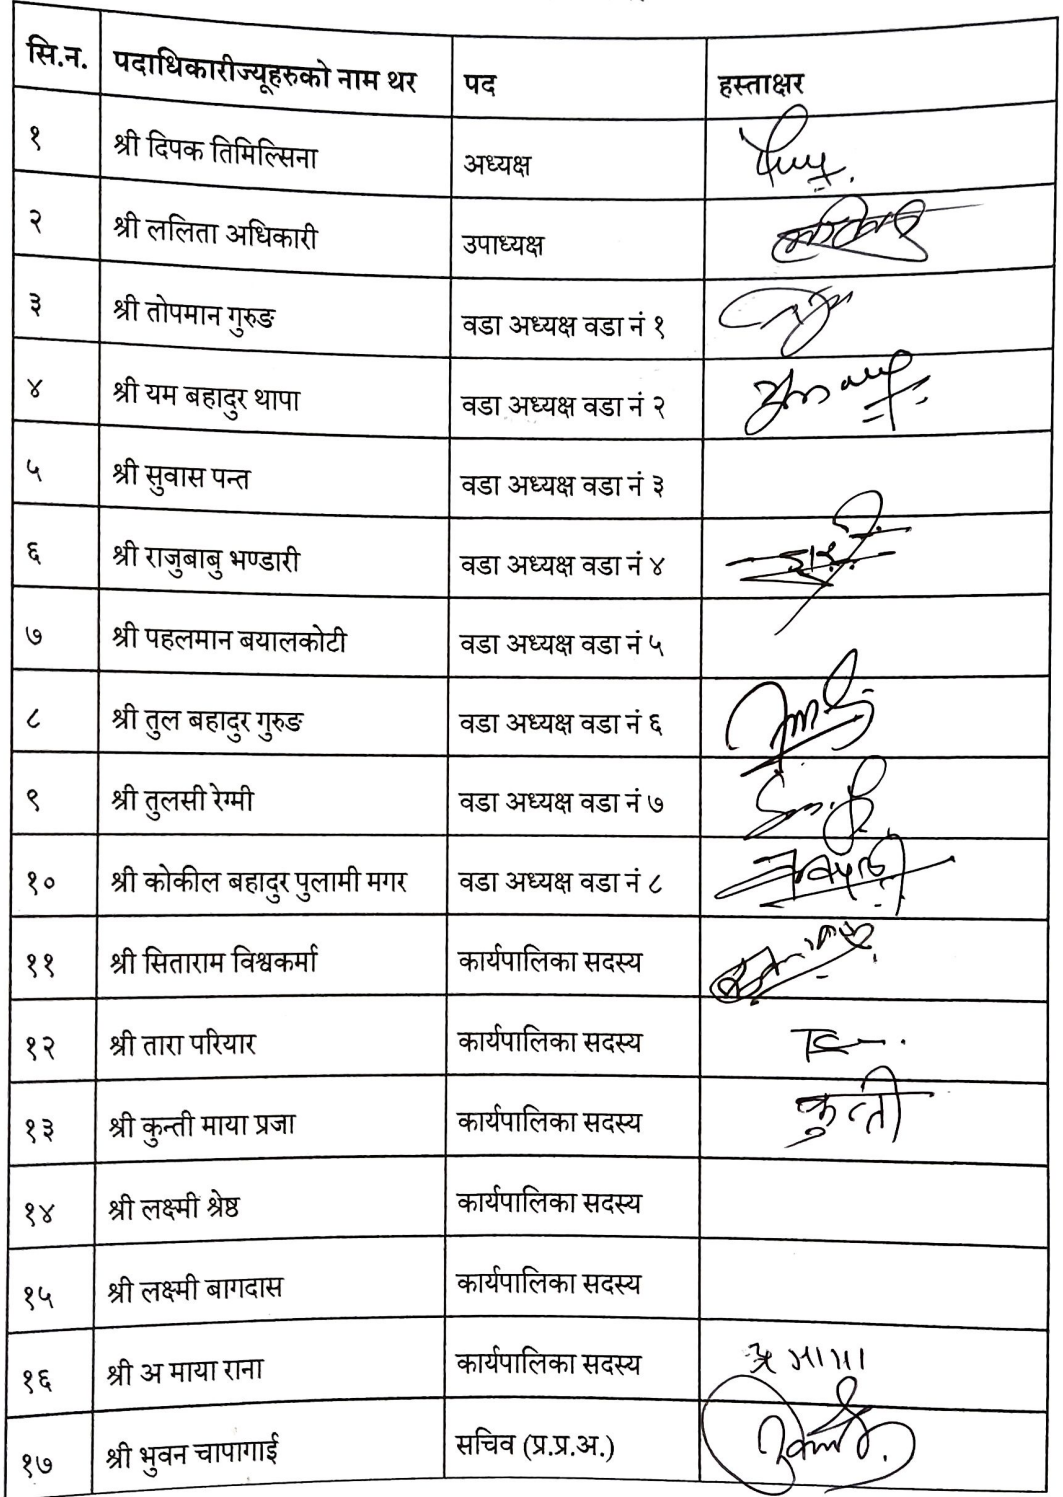 सि.न. पदाधिकारीज्यूहरुको नाम थर पद हस्ताक्षर
१ श्री दिपक तिमिल्सिना अध्यक्ष
२ श्री ललिता अधिकारी उपाध्यक्ष
३ श्री तोपमान गुरुङ वडा अध्यक्ष वडा नं १
४ श्री यम बहादुर थापा वडा अध्यक्ष वडा नं २
५ श्री सुवास पन्त वडा अध्यक्ष वडा नं ३
६ श्री राजुबाबु भण्डारी वडा अध्यक्ष वडा नं ४
७ श्री पहलमान बयालकोटी वडा अध्यक्ष वडा नं ५
८ श्री तुल बहादुर गुरुङ वडा अध्यक्ष वडा नं ६
९ श्री तुलसी रेग्मी वडा अध्यक्ष वडा नं ७
१० श्री कोकील बहादुर पुलामी मगर वडा अध्यक्ष वडा नं ८
११ श्री सिताराम विश्वकर्मा कार्यपालिका सदस्य
१२ श्री तारा परियार कार्यपालिका सदस्य
१३ श्री कुन्ती माया प्रजा कार्यपालिका सदस्य कुन्ती
१४ श्री लक्ष्मी श्रेष्ठ कार्यपालिका सदस्य
१५ श्री लक्ष्मी बागदास कार्यपालिका सदस्य
१६ श्री अ माया राना कार्यपालिका सदस्य
१७ श्री भुवन चापागाई सचिव (प्र.प्र.अ.)